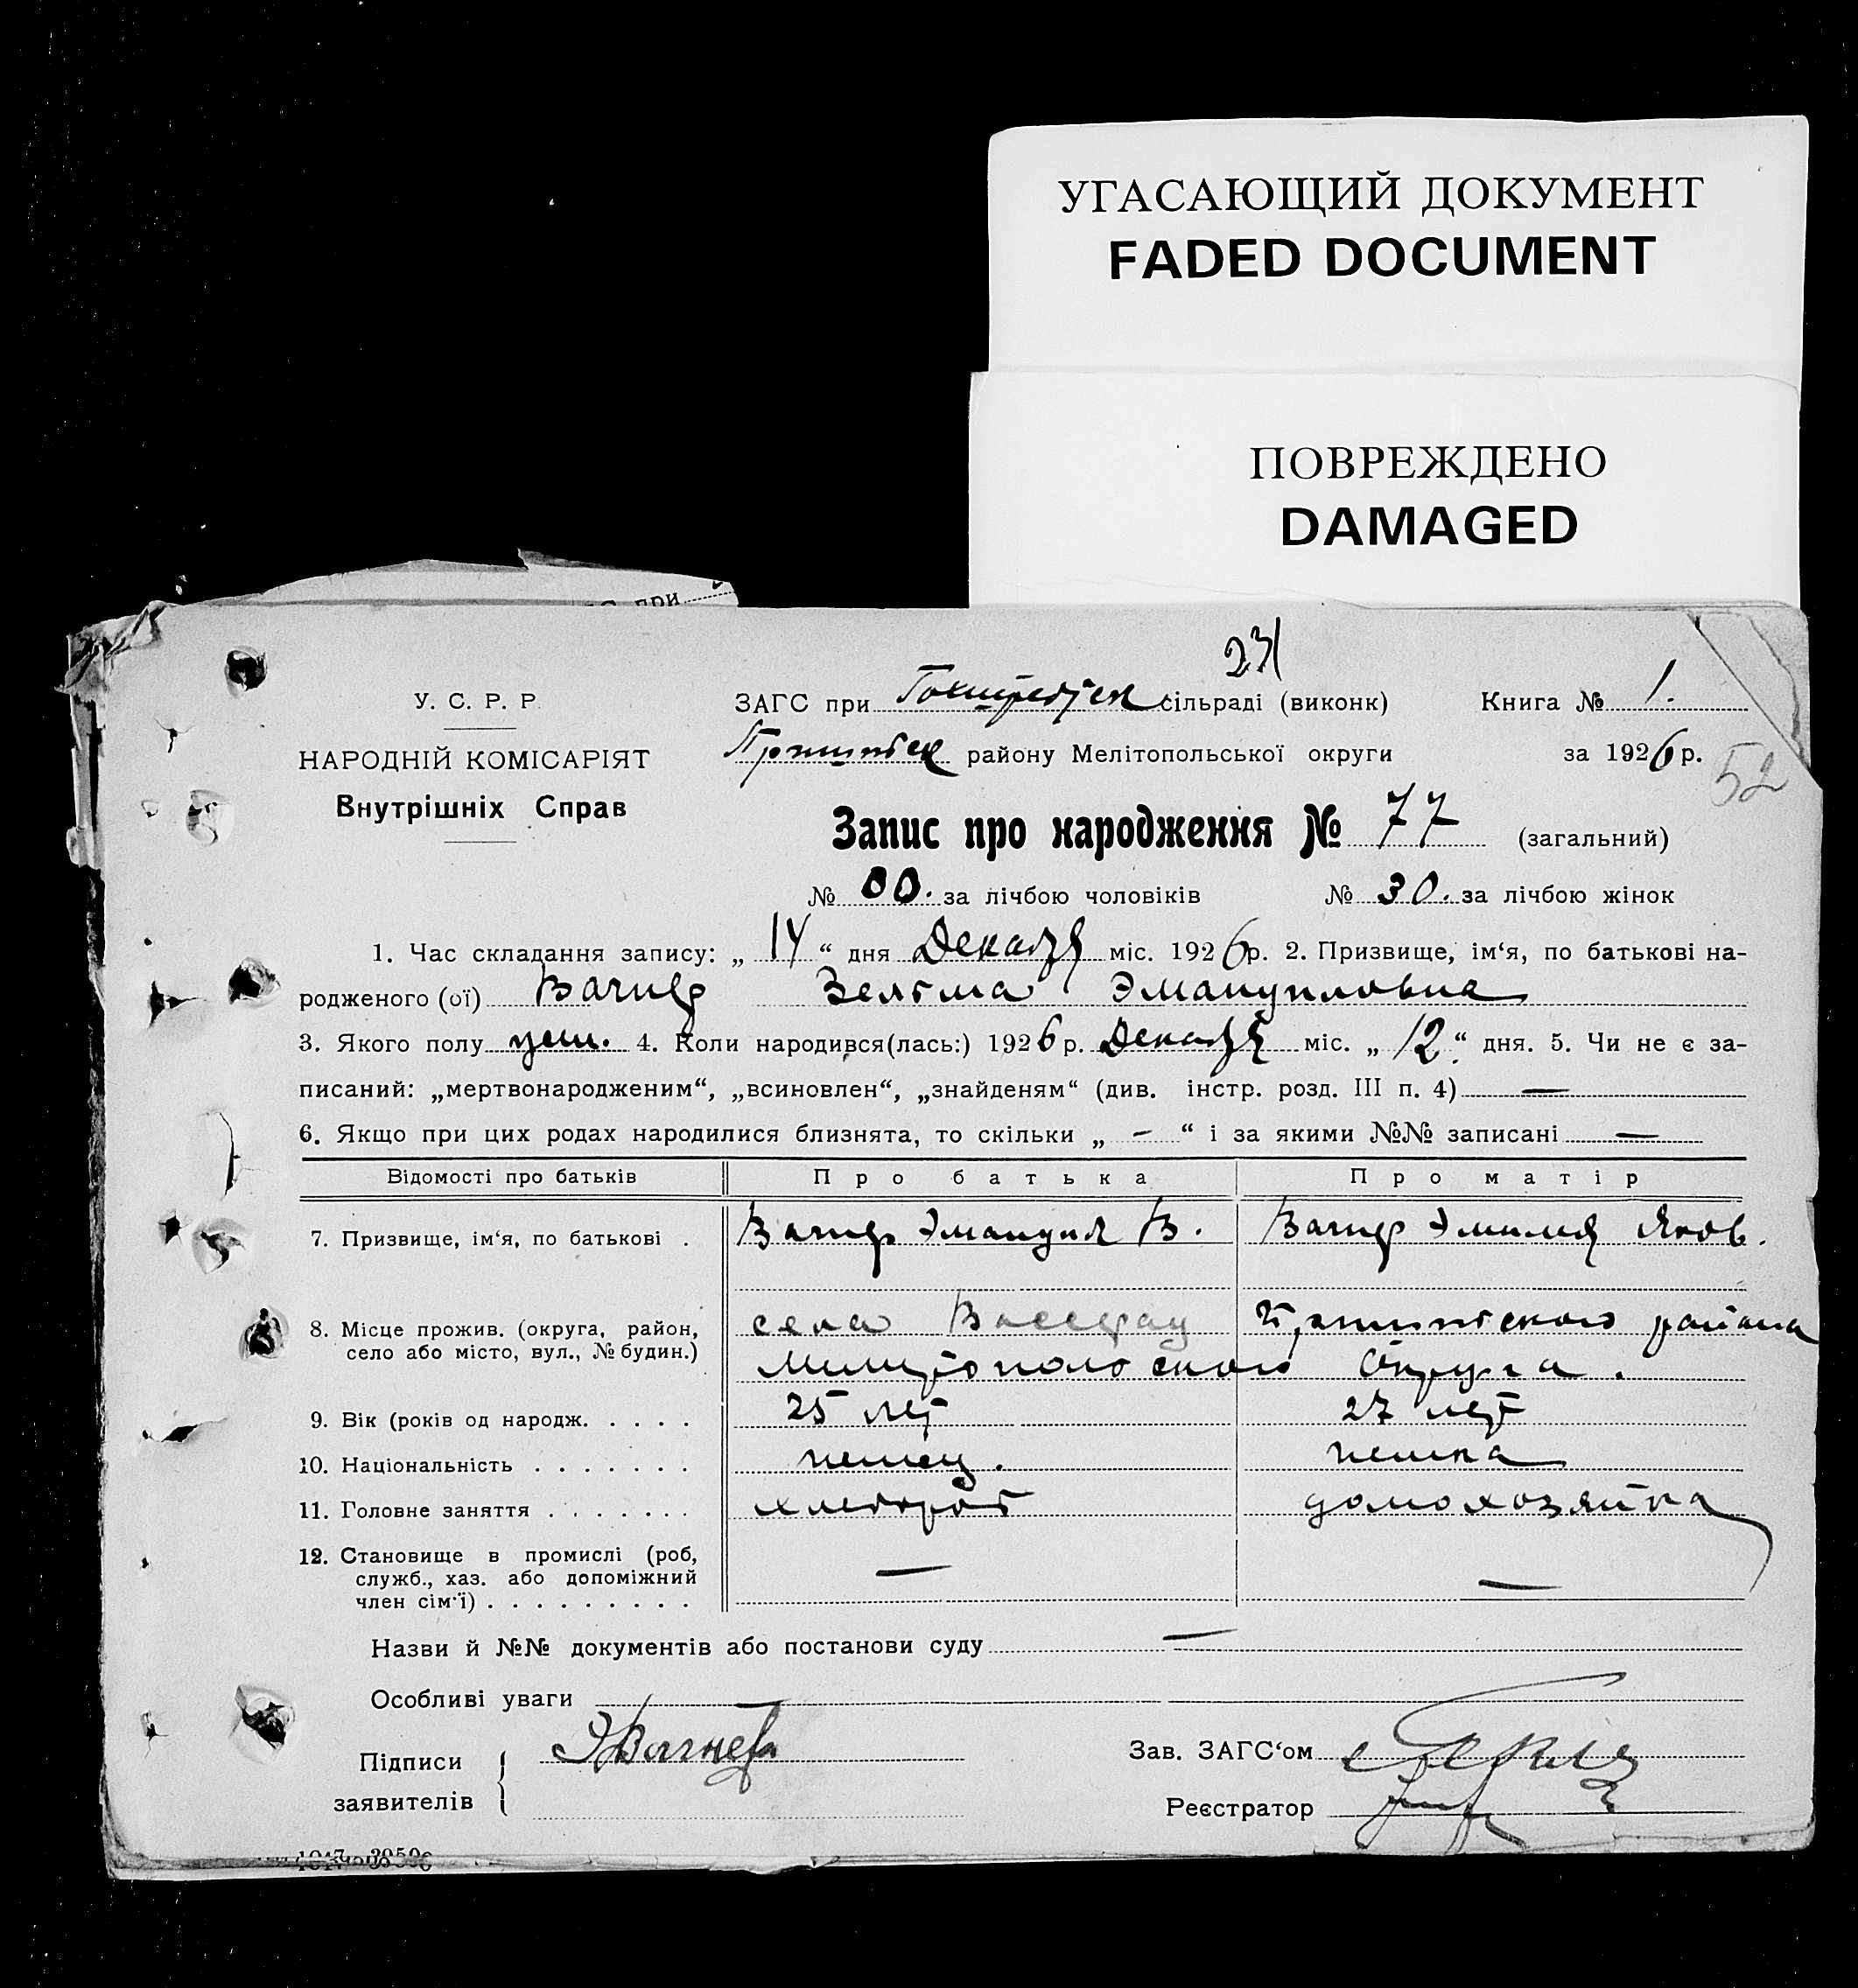 УГАСАЮЩИЙ ДОКУМЕНТ
FADED DOCUMENT
ПОВРЕЖДЕНО
DAMAGED
при
231
У. С. Р. Р.
ЗАГС при Гохштедтск сільраді (виконк) Книга № 1.
НАРОДНІЙ КОМІСАРІЯТ
Пришибск району Мелітопольської округи за 1926 р.
52
Внутрішніх Справ
Запис про народження № 77 (загальний)
№ 00. за лічбою чоловіків № 30. за лічбою жінок
1. Час складання запису: „ 14 “ дня Декабря міс. 1926 р. 2. Призвище, ім‘я, по батькові на-
родженого (ої) Вагнер Зельма Эмануиловна
3. Якого полу жен. 4. Коли народився(лась:) 1926 р. Декабря міс. „ 12 “ дня. 5. Чи не є за-
писаний: „мертвонародженим“, „всиновлен“, „знайденям“ (див. інстр. розд. III п. 4) —
6. Якщо при цих родах народилися близнята, то скільки „ – “ і за якими №№ записані —
Відомості про батьків Про батька Про матір
7. Призвище, ім‘я, по батькові . Вагнер Эмануил В. Вагнер Эмилия Яков.
8. Місце прожив. (округа, район, села Вассерау Пришибского района
село або місто, вул., № будин.) Мелитопольского Округа.
9. Вік (років од народж. . . . . 25 лет 27 лет
10. Національність . . . . . . . немец. немка
11. Головне заняття . . . . . . . хлебороб домохозяйка
12. Становище в промислі (роб,
служб., хаз. або допоміжний — —
член сім‘ї) . . . . . . . . .
Назви й №№ документів або постанови суду —
Особливі уваги —
Підписи Э Вагнер Зав. ЗАГС‘ом
заявителів Реєстратор